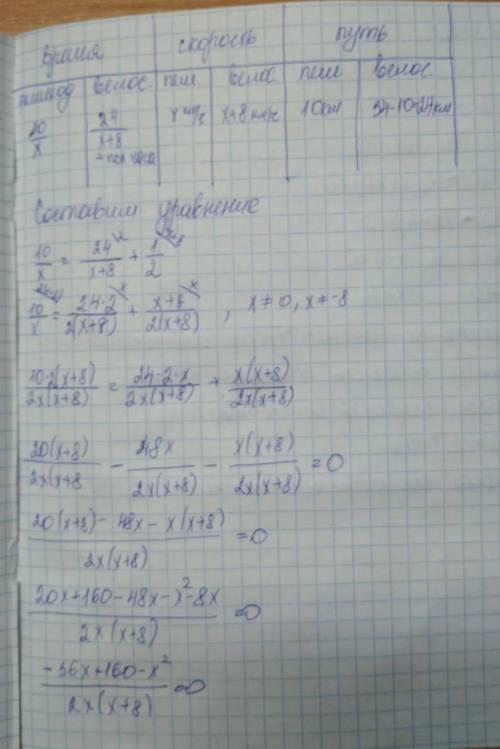 время скорость путь
пешеход велос. пеш. велос пеш велос.
10/x 24/(x+8) x км/ч x+8 км/ч 10 км 34-10=24 км
+ пол часа
Составим уравнение
10/x = 24/(x+8) + 1/2
10/x = 24·2/2(x+8) + (x+8)/2(x+8) , x ≠ 0, x ≠ -8
10·2(x+8)/2x(x+8) = 24·2·x/2x(x+8) + x(x+8)/2x(x+8)
20(x+8)/2x(x+8 - 48x/2x(x+8) - x(x+8)/2x(x+8) = 0
20(x+8) - 48x - x(x+8)/2x(x+8) = 0
20x+160-48x-x²-8x/2x(x+8) = 0
-36x+160-x²/2x(x+8) = 0